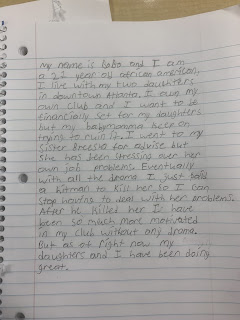 My name is BoBo and I am
a 21 year old african american,
I live with my two daughters
in downtown Atlanta. I own my
own club and I want to be
financially set for my daughters
but my babymomma keep on
trying to ruin it. I went to my
Sister Breesha for advise but
she has been stressing over her
own job problems. Eventually
with all the drama I just paid
a hitman to kill her so I can
stop having to deal with her problems.
After he killed her I have
been so much more motivated
in my club without any drama.
But as of right now my
daughters and I have been doing
great.